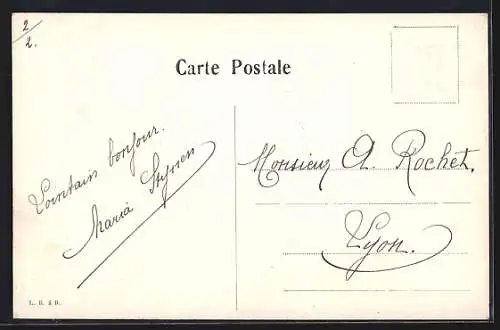 2/2.
Carte Postale
Lointain bonjour.
Maria
Monsieur A. Rochet.
Lyon.
L. B. & B.